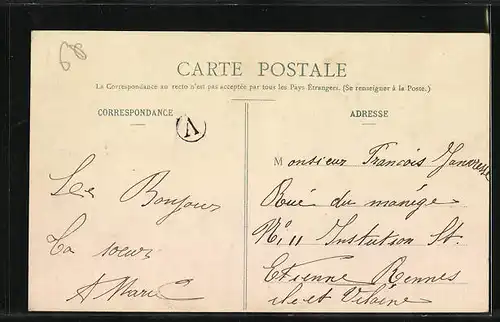 CARTE POSTALE
La Correspondance au recto n'est pas acceptée par tous les Pays Étrangers. (Se renseigner à la Poste.)
CORRESPONDANCE
A
Les Bonjour
ta soeur
A Marie
ADRESSE
Monsieur Francois
Rué du manége
N° 11 Instution St.
Etienne Rennes
ile et Vilaine